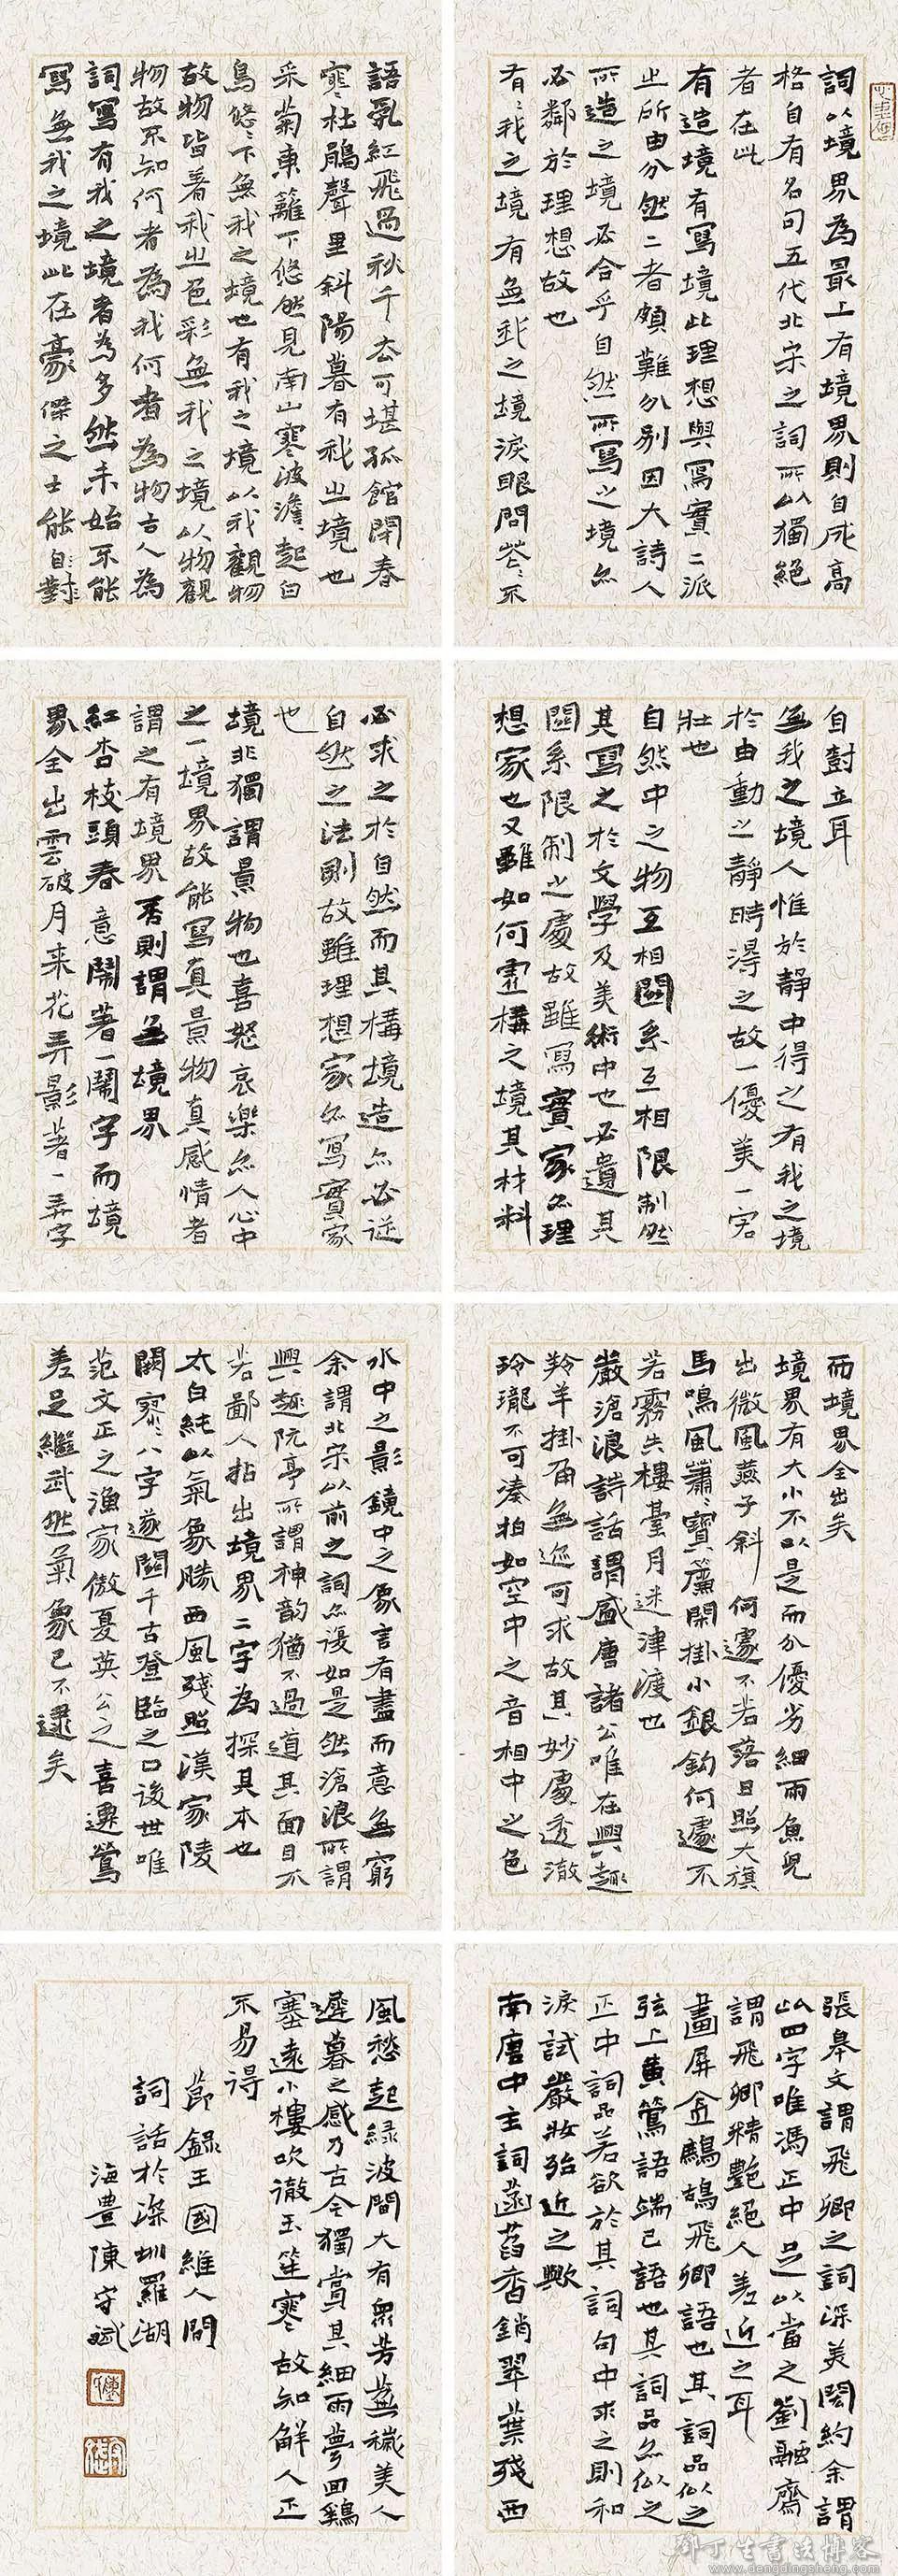 詞以境界為最上有境界則自成高
格自有名句五代北宋之詞所以獨絕
者在此
有造境有寫境此理想與寫實二派
之所由分然二者頗難分別因大詩人
所造之境必合乎自然所寫之境亦
必鄰於理想故也
有〻我之境有無我之境淚眼問花〻不
語亂紅飛過秋千去可堪孤館閉春
寒杜鵑聲里斜陽暮有我之境也
采菊東籬下悠然見南山寒波澹〻起白
鳥悠〻下無我之境也有我之境以我觀物
故物皆著我之色彩無我之境以物觀
物故不知何者為我何者為物古人為
詞寫有我之境者為多然未始不能
寫無我之境此在豪傑之士能自對
自樹立耳
無我之境人惟於靜中得之有我之境
於由動之靜時得之故一優美一宏
壯也
自然中之物互相關系互相限制然
其寫之於文學及美術中也必遺其
關系限制之處故雖寫實家亦理
想家也又雖如何虛構之境其材料
必求之於自然而其構境造亦必從
自然之法則故雖理想家亦寫實家
也
境非獨謂景物也喜怒哀樂亦人心中
之一境界故能寫真景物真感情者
謂之有境界否則謂無境界
紅杏枝頭春意鬧著一鬧字而境
界全出雲破月来花弄影著一弄字
而境界全出矣
境界有大小不以是而分優劣細雨魚兒
出微風燕子斜何遽不若落日照大旗
馬鳴風蕭〻寶簾閑掛小銀鈎何遽不
若霧失樓臺月迷津渡也
嚴滄浪詩話謂盛唐諸公唯在興趣
羚羊掛角無迹可求故其妙處透澈
玲瓏不可湊拍如空中之音相中之色
水中之影鏡中之象言有盡而意無窮
余謂北宋以前之詞亦復如是然滄浪所謂
興趣阮亭所謂神韵猶不過道其面目不
若鄙人拈出境界二字為探其本也
太白純以氣象勝西風殘照漢家陵
闕寥〻八字遂關千古登臨之口後世唯
范文正之漁家傲夏英公之喜遷鶯
差足繼武然氣象已不逮矣
張皋文謂飛卿之詞深美閎約余謂
此四字唯馮正中足以當之劉融齋
謂飛卿精艷絕人差近之耳
畫屏金鷓鴣飛卿語也其詞品似之
弦上黄鶯語端己語也其詞品亦似之
正中詞品若欲於其詞句中求之則和
淚試嚴妝殆近之歟
南唐中主詞菡萏香銷翠葉殘西
風愁起綠波間大有衆芳蕪穢美人
遲暮之感乃古今獨賞其細雨夢回鷄
塞遠小樓吹徹玉笙寒故知解人正
不易得
節錄王國維人間
詞話於深圳羅湖
海豊陳守斌
鄧丁生書法博客
www.dengdingsheng.com